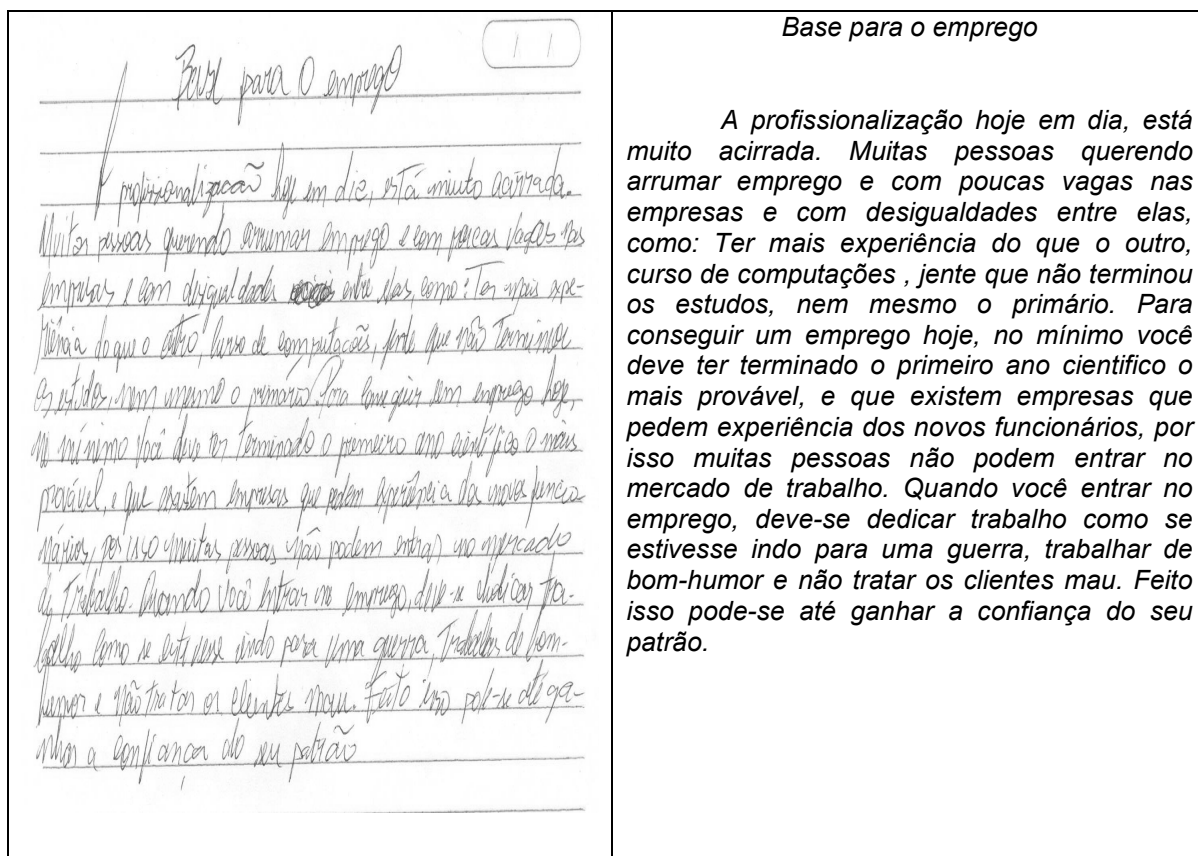 Base para o emprego
A profissionalização hoje em dia, está muito acirrada.
Muitas pessoas querendo arrumar emprego e com poucas vagas nas
empresas e com desigualdades entre elas, como: Ter mais expe-
riência do que o outro, curso de computações, jente que não terminou
os estudos, nem mesmo o primário. Para conseguir um emprego hoje,
no mínimo você deve ter terminado o primeiro ano cientifico o mais
provável, e que existem empresas que pedem experiência dos novos funcio-
nários, por isso muitas pessoas não podem entrar no mercado
de Trabalho. Quando você entrar no emprego, deve-se dedicar tra-
balho como se estivesse indo para uma guerra, Trabalhar de bom-
humor e não tratar os clientes mau. Feito isso pode-se até ga-
nhar a confiança do seu patrão
Base para o emprego
A profissionalização hoje em dia, está
muito acirrada. Muitas pessoas querendo
arrumar emprego e com poucas vagas nas
empresas e com desigualdades entre elas,
como: Ter mais experiência do que o outro,
curso de computações , jente que não terminou
os estudos, nem mesmo o primário. Para
conseguir um emprego hoje, no mínimo você
deve ter terminado o primeiro ano cientifico o
mais provável, e que existem empresas que
pedem experiência dos novos funcionários, por
isso muitas pessoas não podem entrar no
mercado de trabalho. Quando você entrar no
emprego, deve-se dedicar trabalho como se
estivesse indo para uma guerra, trabalhar de
bom-humor e não tratar os clientes mau. Feito
isso pode-se até ganhar a confiança do seu
patrão.